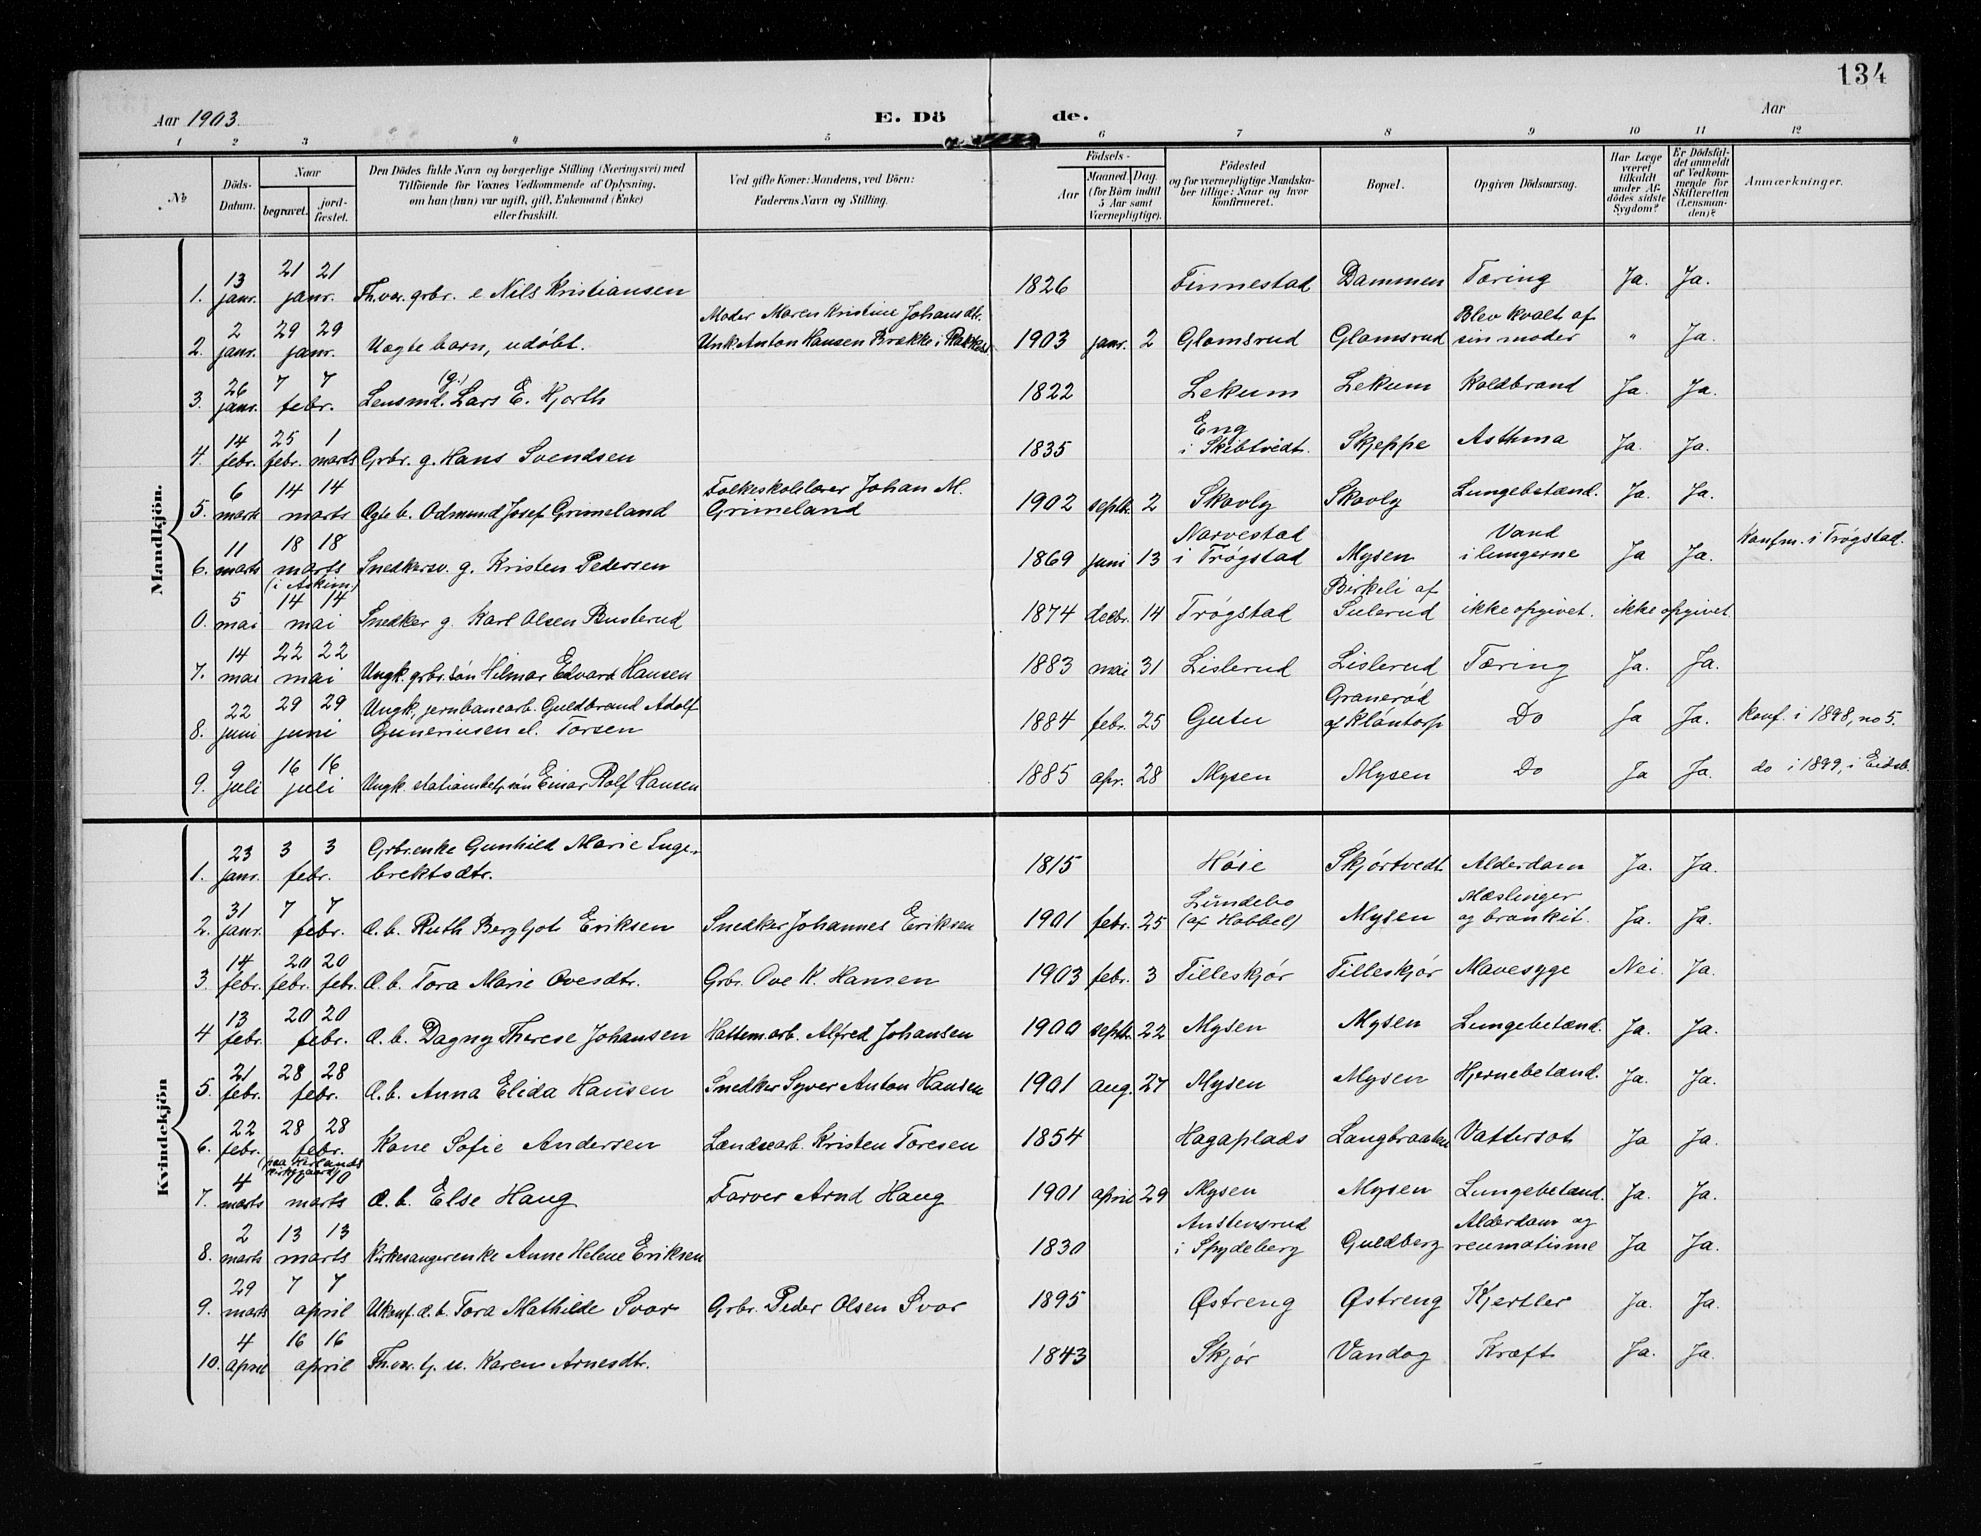 134
Aar 1903.
E. Dö de.
Aar
1 2 3 4 5 6 7 8 9 10 11 12
No
Döds-Datum.
Naar
begravet.
jord-fæstet.
Den Dödes fulde Navn og borgerlige Stilling (Næringsvei) med
Tilföiende for Voxnes Vedkommende af Oplysning,
om han (hun) var ugift, gift, Enkemand (Enke)
eller fraskilt.
Ved gifte Koner: Mandens, ved Börn:
Faderens Navn og Stilling.
Födsels-
Aar
Maaned. Dag.
(for Börn indtil
5 Aar samt
Værnepligtige).
Födested
og for værnepligtige Mandska-
ber tillige: Naar og hvor
konfirmeret.
Bopæl.
Opgiven Dödsaarsag.
Har Læge
været
tilkaldt
under Af-
dödes sidste
Sygdom?
Er Dödsfal-
det anmeldt
af Vedkom-
mende for
Skifteretten
(Lensman-
den)?
Anmærkninger.
Mandkjön.
1. 13 janr. 21 21 janr. Fh.v. grbr. e Nils Kristiansen 1826 Finnestad Dammen Tæring Ja. Ja.
2. 2 janr. 29 29 janr. Uægte barn, udøbt. Moder Maren Kristine Johansdt.
Unk. Anton Hansen Brække i Rakkest. 1903 janr. 2 Glomsrud Glomsrud Blev kvalt af
sin moder " Ja.
3. 26 janr. 7 7 febr. Lensmd. (g.) Lars E. Hjorth 1822 Lekum Lekum Koldbrand Ja. Ja.
4. 14 febr. 25 febr. 1 marts Grbr. g. Hans Svendsen 1835 Eng
i Skibtvedt. Skjeppe Asthma Ja. Ja.
5. 6 marts 14 14 marts Ægte b. Odmund Josef Grimeland Folkeskolelærer Johan M.
Grimeland 1902 septbr. 2 Skovly Skovly Lungebetænd. Ja. Ja.
6. 11 marts 18 18 marts (i Askim) Snedkersv. g. Kristen Pedersen 1869 juni 13 Narvestad
i Trøgstad Mysen Vand
i lungerne Ja Ja. Konfm. i Trøgstad.
0. 5 mai 14 14 mai Snedker g. Karl Olsen Busterud 1874 decbr. 14 Trøgstad Birkeli af
Sulerud ikke opgivet. ikke opgivet
7. 14 mai 22 22 mai Ungk. grbr. søn Hilmar Edvard Hansen 1883 mai 31 Lislerud Lislerud Tæring Ja. Ja.
8. 22 juni 29 29 juni Ungk. jernbanearb. Guldbrand Adolf
Gunerinsen el. Torsen 1884 febr. 25 Gutu Granerød
af Kløntorp Do Ja Ja. Konf. i 1898, no 5.
9. 9 juli 16 16 juli Ungk. stationbetj. søn Einar Rolf Hansen 1885 apr. 28 Mysen Mysen Do Ja Ja. do i 1899, i Eidsb.
Kvindekjön
1. 23 janr. 3 3 febr. Grbr.enke Gunhild Marie Inge-
brektsdtr. 1815 Høie Skjørtvedt Alderdom Ja. Ja.
2. 31 janr. 7 7 febr. Æ. b. Ruth Bergljot Eriksen Snedker Johannes Eriksen 1901 febr. 25 Lundebo
(af Hobbel) Mysen Mæslinger
og bronkit. Ja. Ja.
3. 14 febr. 20 febr. 20 febr. Æ. b. Tora Marie Ovesdtr. Grbr. Ove K. Hansen 1903 febr. 3 Tilleskjør Tilleskjør Mavesyge Nei Ja.
4 13 febr. 20 20 febr. Æ. b. Dagny Therese Johansen Hattem.arb. Alfred Johansen 1900 septbr. 22 Mysen Mysen Lungebetænd. Ja. Ja.
5. 21 febr. 28 28 febr. Æ. b. Anna Elida Hansen Snedker Syver Anton Hansen 1901 aug. 27 Mysen Mysen Hjernebetænd. Ja. Ja.
6. 22 febr. 28 28 febr. Kone Sofie Andersen Lændsearb. Kristen Toresen 1854 Hagaplads Langbraaten Vattersot Ja Ja.
(paa Kirlands kirkegaard)
7. 4 marts 10 10 marts Æ. b. Else Haug Farver Arnd Haug 1901 april 29 Mysen Mysen Lungebetænd. Ja. Ja.
8. 2 marts 13 13 marts Kirkesangerenke Anne Helene Eriksen 1830 Austensrud
i Spydeberg Guldberg Alderdom og
reumatisme Ja Ja.
9. 29 marts 7 7 april Ukonf. æ. b. Tora Mathilde Svor Grbr. Peder Olsen Svor 1895 Østreng Østreng Kjertler Ja. Ja.
10. 4 april 16 16 april Fh.v. tj. u. Karen Arnesdtr. 1843 Skjør Vandog Kræft Ja. Ja.